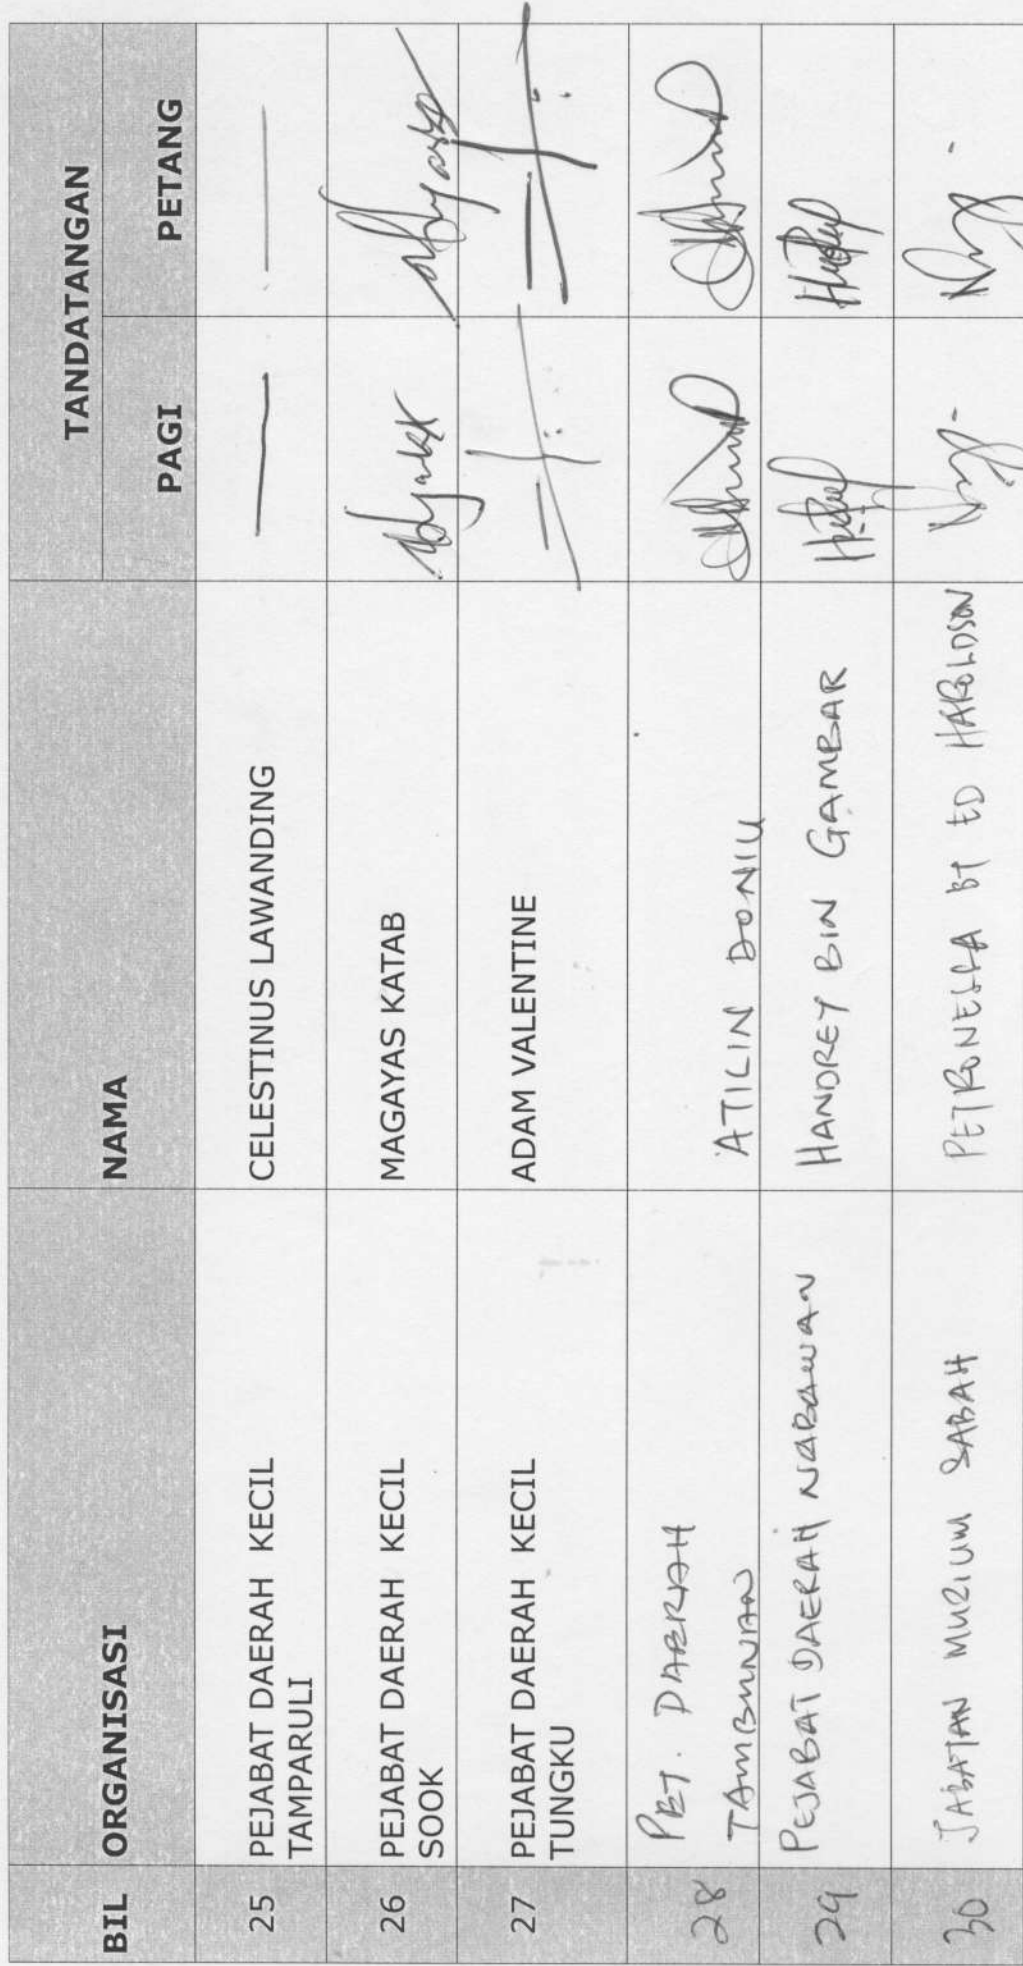 BIL ORGANISASI NAMA TANDATANGAN
PAGI PETANG
25 PEJABAT DAERAH KECIL CELESTINUS LAWANDING
TAMPARULI
26 PEJABAT DAERAH KECIL MAGAYAS KATAB
SOOK
27 PEJABAT DAERAH KECIL ADAM VALENTINE
TUNGKU
28 PBT. DAERAH
TAMBUNAN ATILIN DONIU
29 PEJABAT DAERAH NABAWAN HANDREY BIN GAMBAR
30 JABATAN MUZIUM SABAH PETRONESSA BT ED HAROLDSON